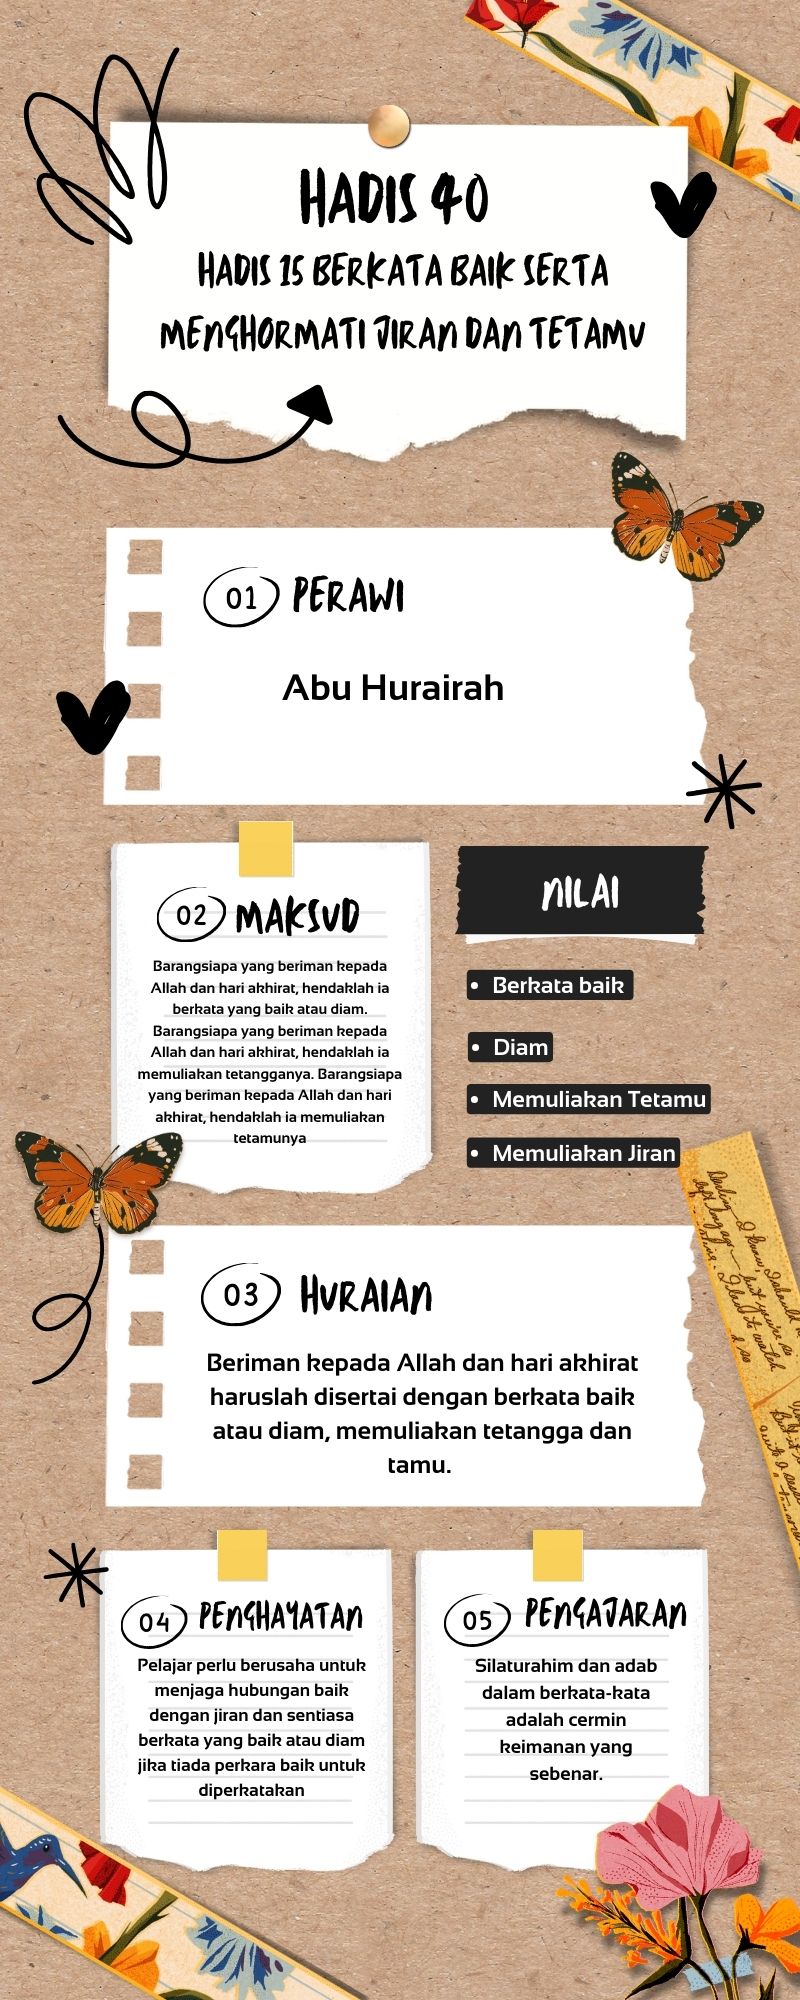 HADIS 40
HADIS 15 BERKATA BAIK SERTA
MENGHORMATI JIRAN DAN TETAMU
01 PERAWI
Abu Hurairah
02 MAKSUD
Barangsiapa yang beriman kepada
Allah dan hari akhirat, hendaklah ia
berkata yang baik atau diam.
Barangsiapa yang beriman kepada
Allah dan hari akhirat, hendaklah ia
memuliakan tetangganya. Barangsiapa
yang beriman kepada Allah dan hari
akhirat, hendaklah ia memuliakan
tetamunya
NILAI
• Berkata baik
• Diam
• Memuliakan Tetamu
• Memuliakan Jiran
03 HURAIAN
Beriman kepada Allah dan hari akhirat
haruslah disertai dengan berkata baik
atau diam, memuliakan tetangga dan
tamu.
04 PENGHAYATAN
Pelajar perlu berusaha untuk
menjaga hubungan baik
dengan jiran dan sentiasa
berkata yang baik atau diam
jika tiada perkara baik untuk
diperkatakan
05 PENGAJARAN
Silaturahim dan adab
dalam berkata-kata
adalah cermin
keimanan yang
sebenar.